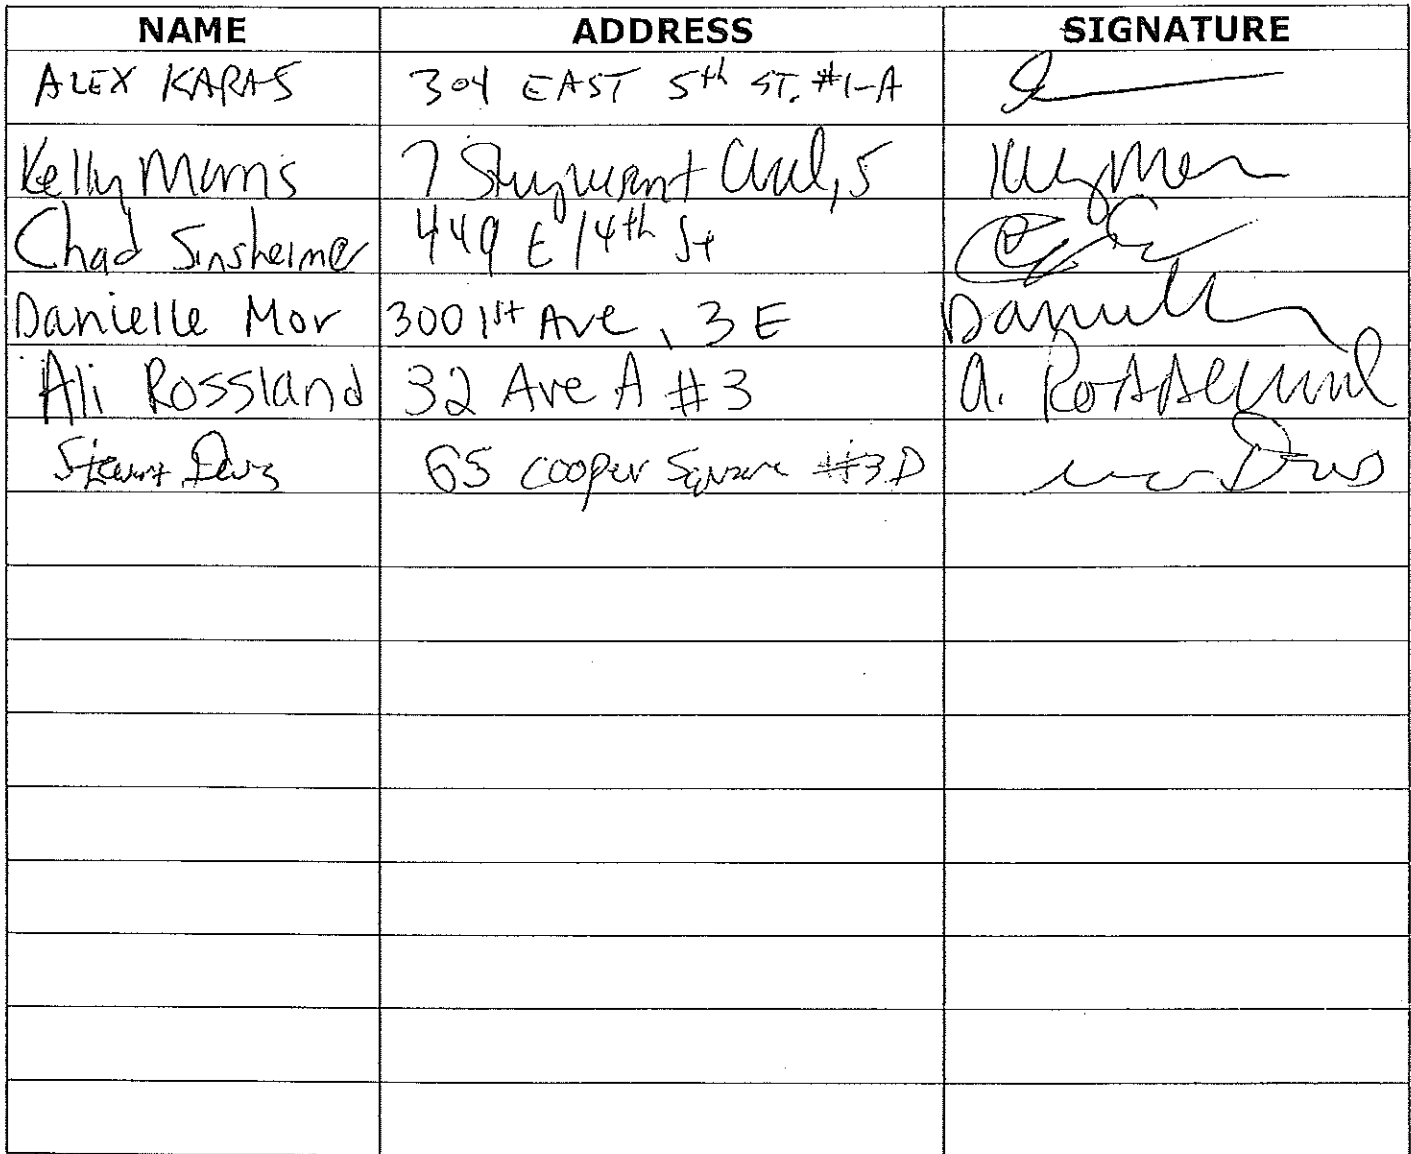 NAME ADDRESS SIGNATURE
ALEX KARAS 304 EAST 5th ST. #1-A
Kelly Morris 7 Stuyvesant 5
Chad Sinsheimer 449 E 14th St
Danielle Mor 300 1st Ave, 3E
Ali Rossland 32 Ave A #3 A. Rossland
65 Cooper Square #3D